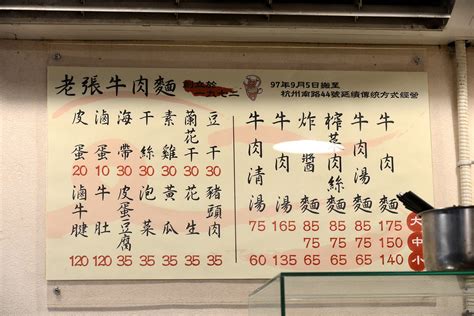 老張牛肉麵
創立於
一九七二
97年9月5日搬至
杭州南路44號延續傳統方式經營
皮蛋 20
滷蛋 10
海帶 30
干絲 30
素雞 30
蘭花干
豆干 30
滷牛腱 120
牛肚 120
皮蛋豆腐 35
泡菜 35
黃瓜 35
花生 35
豬頭肉 35
牛肉清湯 75 60
牛肉湯 165 135
炸醬麵 85 75 65
榨菜肉絲麵 85 75 65
牛肉湯麵 85 75 65
牛肉麵 175 150 140
大
中
小